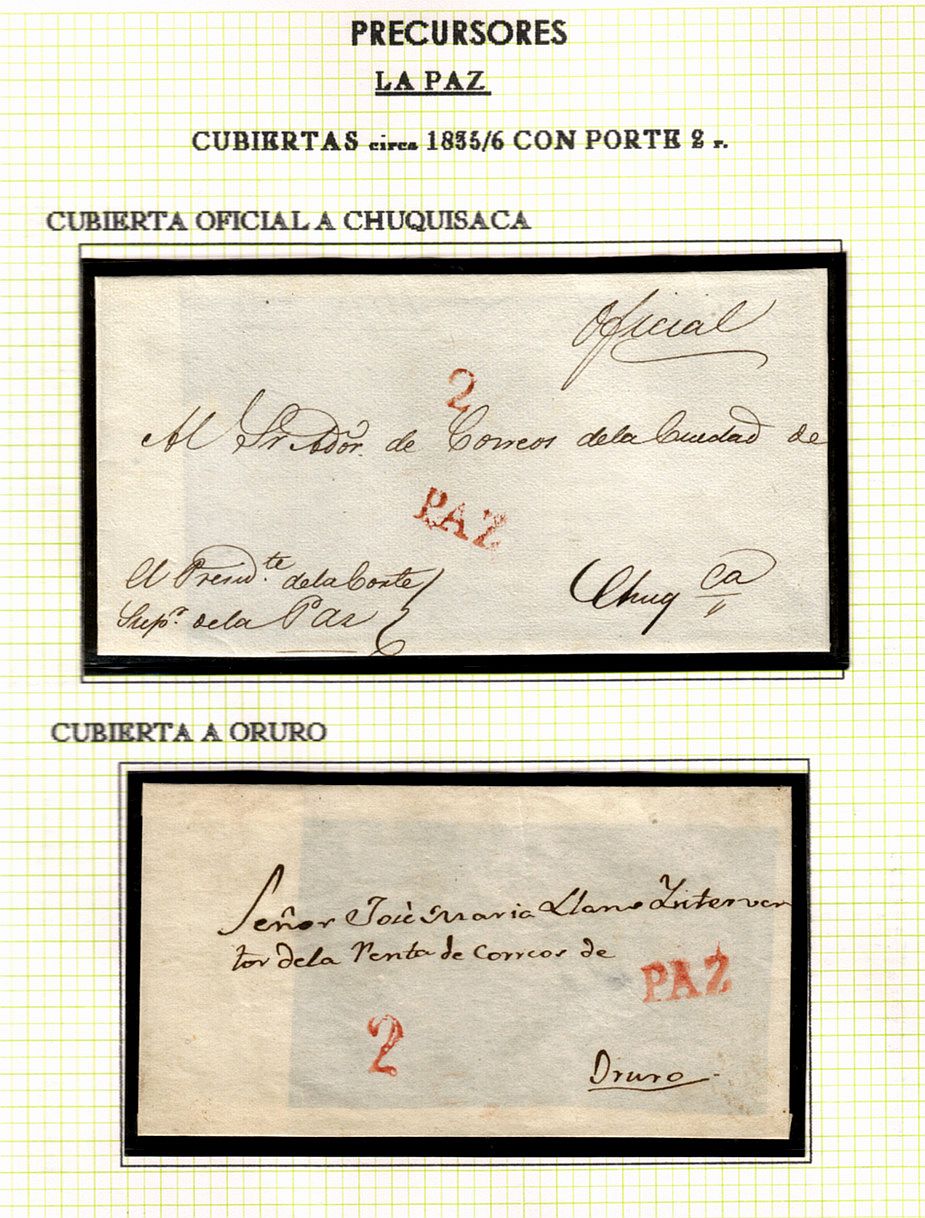 PRECURSORES
LA PAZ
CUBIERTAS circa 1835/6 CON PORTE 2 r.
CUBIERTA OFICIAL A CHUQUISACA
Oficial
2
Al Sr Ador. de Correos dela Ciudad de
PAZ
El Presid.te dela Corte
Supr. dela Paz
Chuqca
CUBIERTA A ORURO
Señor José Maria Llano Interven
tor dela Renta de Correos de
PAZ
2
Oruro